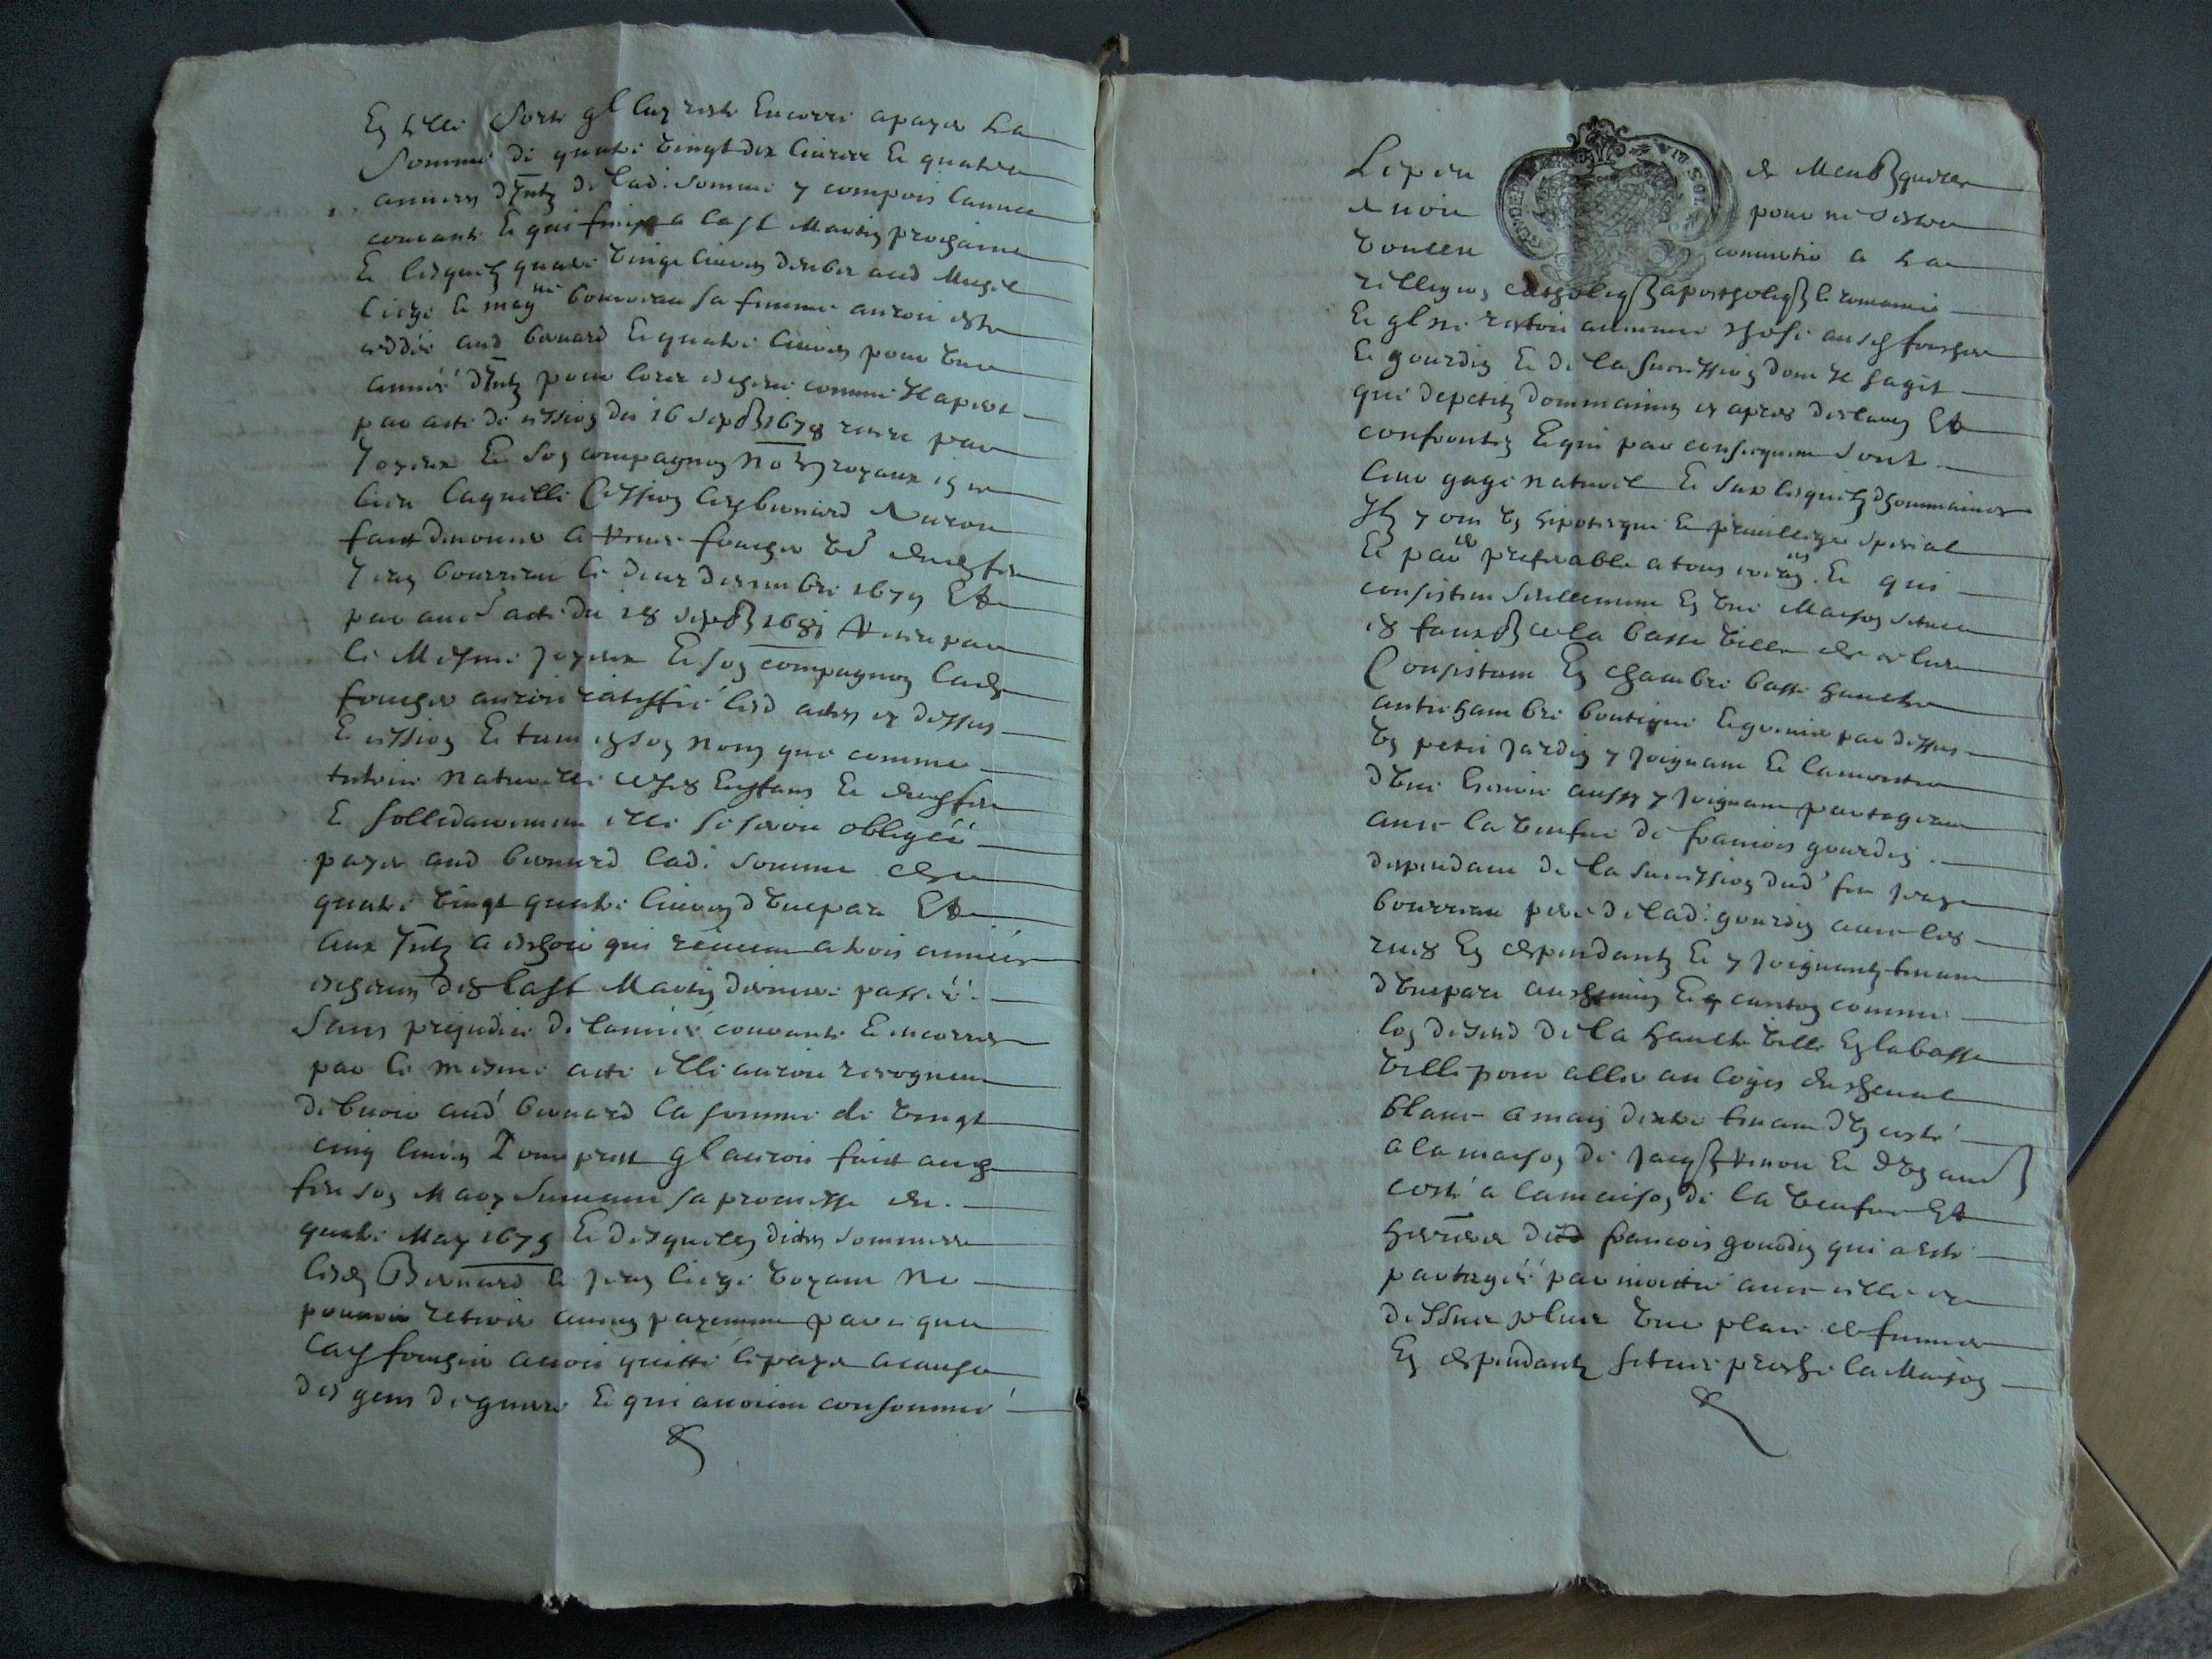 En telle sorte ql luy reste encorre a payer la
somme de quatre vingt dix livres et quatre
années d'Intz de lad. somme y compris l'année
courante et qui finira a la St Martin prochaine
Et lesquelz quatre vingt livres deubes aud
Liege et bourreau sa femme auroit esté
ceddée aud bernard et quatre livres pour une
année d'Intz pour lors escheue comme Il apert
par acte de cession du 16 sepbr 1678 receu par
Joyeux et son compagnon nores royaux en ce
lieu laquelle Cession led bernard auroit
faict denoncer a fouscher ve dud feu
Jean bourreau le deux desembre 1679 Et
par autre acte du 18 sepbr 1681 receu par
le mesme Joyeux et son compagnon lade
fouscher auroit ratiffié lesd actes cy dessus
Et cession et tant en son nom que comme
tutrice naturelle de ses enffans et dud feu
Et sollidairement elle se seroit obligée
payer aud bernard lad. somme de
quatre vingt quatre livres d'une part Et
aux Intz a eschoir qui reviennent a trois années
escheues des la St Martin derniere passée
Sans prejudice de l'année courante Et encorres
par le mesme acte elle auroit recogneu
debvoir aud bernard la somme de vingt
cinq livres pour prest ql auroit faict aud
feu son mary suivant sa promesse du
quatre May 1675 Et desquelles dictes sommes
lesd Bernard et Jean liege voyant ne
pouvoir retirer aucun payement parce que
lad fouscher auroit quitté le pays a cause
des gens de guerre Et qui avoient consommé
Le peu de meubles quelle
avoit pour ne s'estre
voullu convertir a la
relligion catholique apostholique et romaine
Et ql ne restoit aucunne chose ausd fouscher
Et gourdin et de la succession dont Il s'agit
que de petitz dommaines cy apres desclarés Et
confrontez Et qui par consequent sont
leur gage naturel Et sur lesquelz dhommaines
Ilz y ont un hipotecque et privillege special
Et par preferable a tous Et qui
consistent seullement En une maison scituée
es fauxbs de la basse ville de ce lieu
Consistant En chambre basse haulte
antichambre boutique et grenier par dessus
un petit Jardin y joignant Et la moitié
d'une aussy y joignant partageant
avec la veufve de francois gourdin
despendant de la succession dud feu Jean
bourreau pere de lad. gourdin avec les
rues En despendantz et y joignantz tenant
d'une part au chemin Et canton comme
lon desend de la haulte ville En la basse
ville pour aller au logis du cheval
blanc a main dextre tenant d'un costé
a la maison de Jacq Et d'un autre
costé a la maison de la veufve Et
heritiers dud francois gourdin qui a esté
partagée par moittié avec elle cy
dessus plus une place de fumier
En despendantz scituée proche la Maison